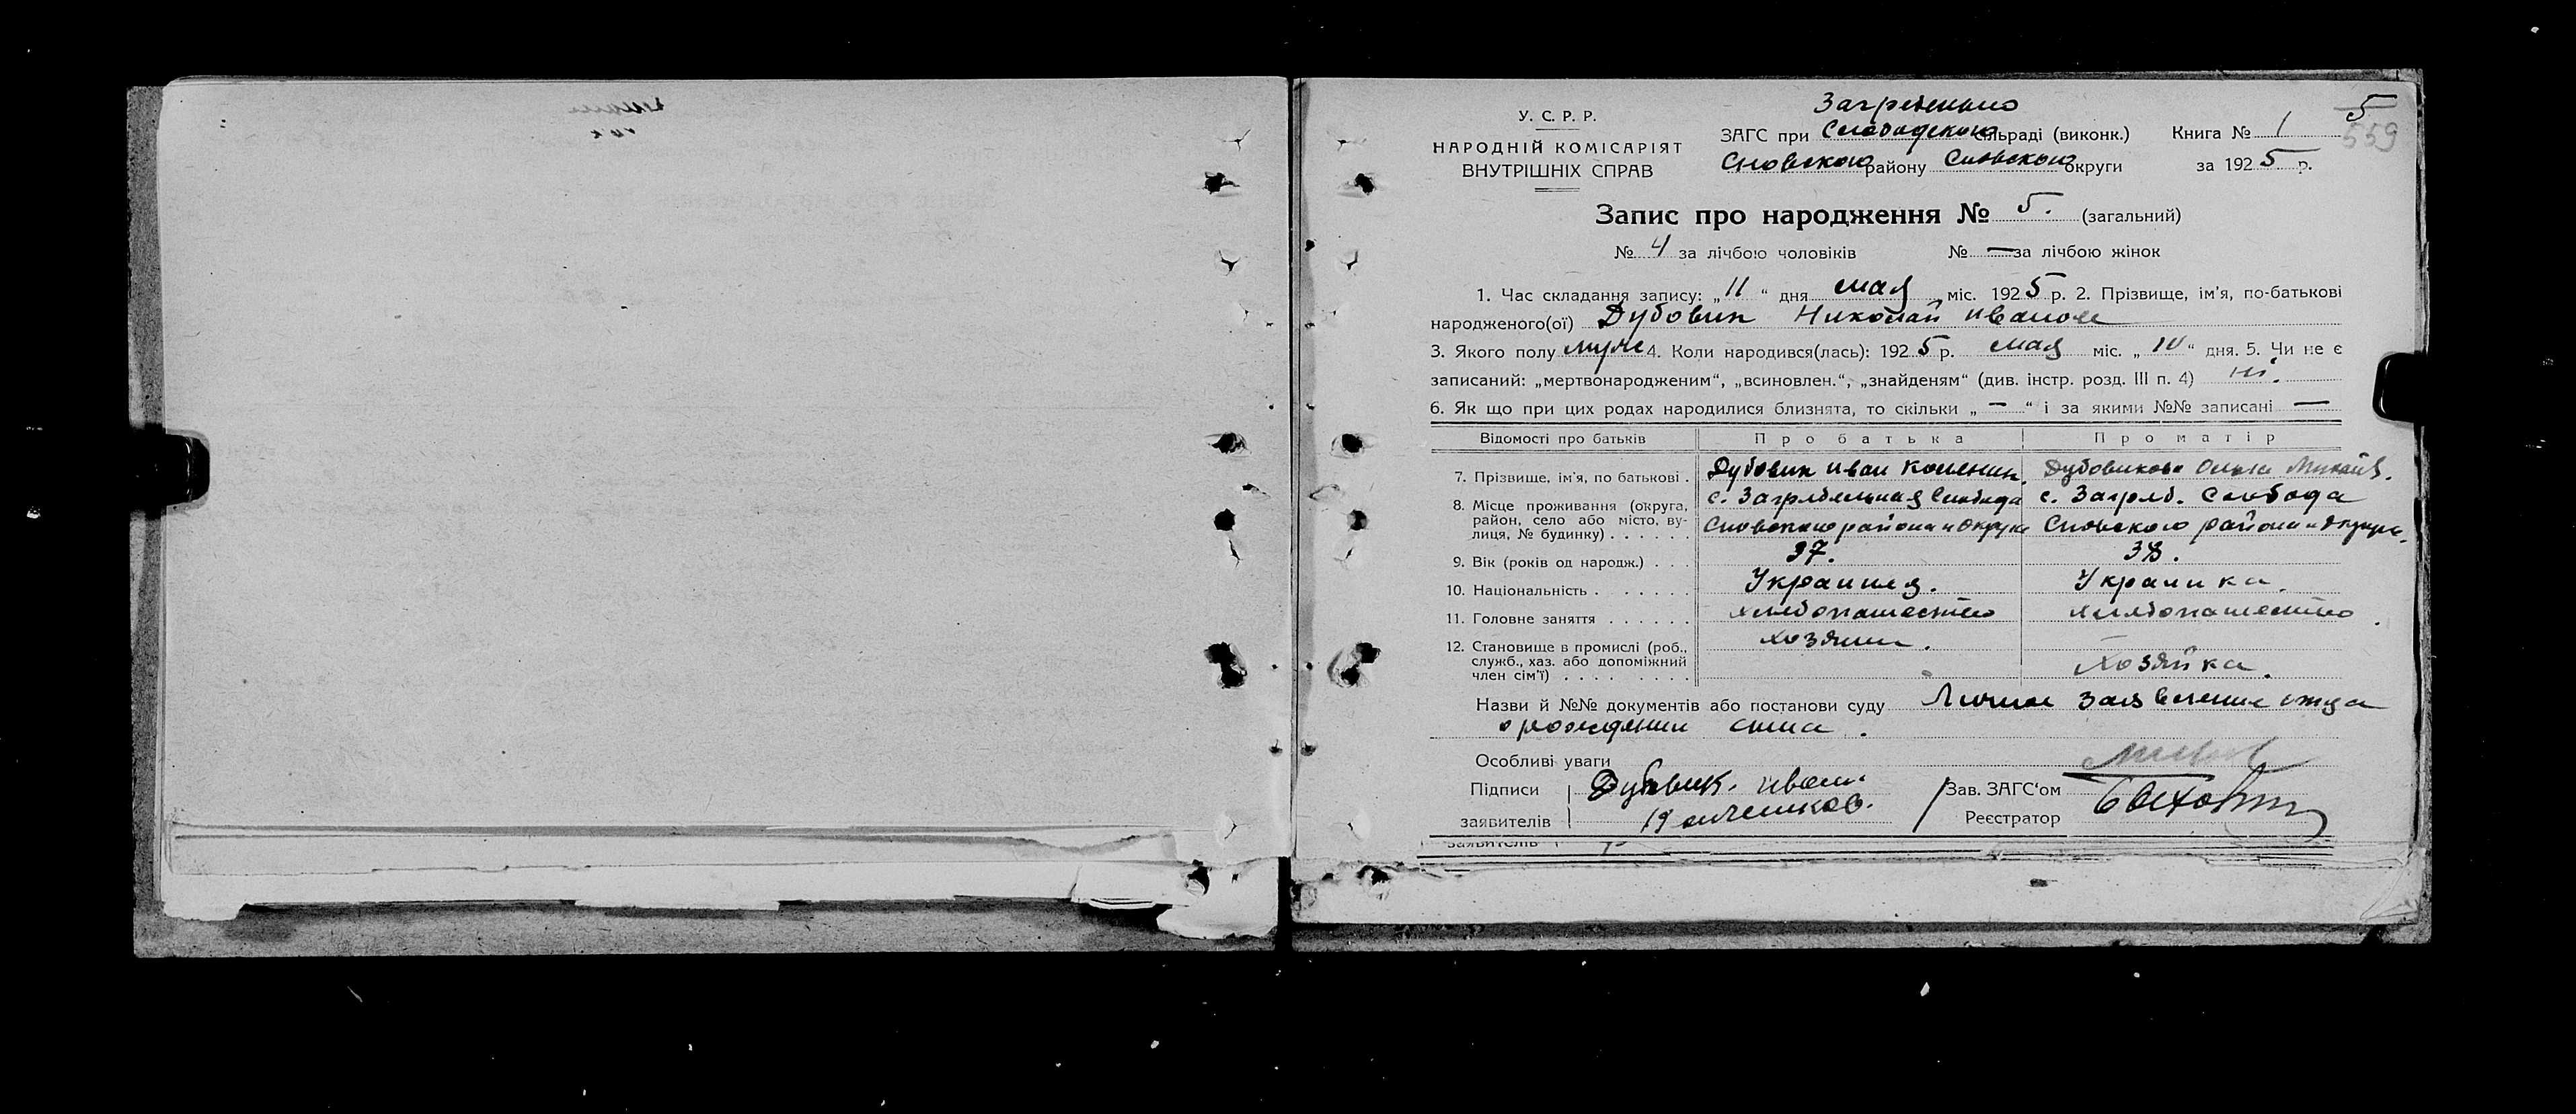 5
559
У. С. Р. Р.
НАРОДНІЙ КОМІСАРІЯТ
ВНУТРІШНІХ СПРАВ
Загребельно
ЗАГС при Слободською сільраді (виконк.) Книга № 1
Сновского району Сновского округи за 1925 р.
Запис про народження № 5. (загальний)
№ 4 за лічбою чоловіків № — за лічбою жінок
1. Час складання запису: „11“ дня мая міс. 1925 р. 2. Прізвище, ім'я, по-батькові
народженого(ої) Дубовик Николай Иванов
3. Якого полу муж 4. Коли народився(лась): 1925 р. мая міс. „10“ дня. 5. Чи не є
записаний: „мертвонародженим“, „всиновлен.“, „знайденям“ (див. інстр. розд. III п. 4) ні.
6. Як що при цих родах народилися близнята, то скільки „ — “ і за якими №№ записані —
Відомості про батьків Про батька Про матір
7. Прізвище, ім'я, по батькові . Дубовик Иван Дубовикова Ольга Михайл.
8. Місце проживання (округа, район, село або місто, вулиця, № будинку) . . . . . . с. Загребельная Слобода Сновского района и округи с. Загреб. Слобода Сновского района и округи.
9. Вік (років од народж.) . . . 37. 38.
10. Національність . . . . . . Украинец. Украинка.
11. Головне заняття . . . . . . хлебопашество хлебопашество
12. Становище в промислі (роб., служб., хаз. або допоміжний член сім'ї) . . . . . . . . . хозяин. Хозяйка.
Назви й №№ документів або постанови суду Личное заявление отца
о рождении сына.
Особливі уваги
Підписи Дубовик. Иван
заявителів
Зав. ЗАГС'ом
Реєстратор
заявителів